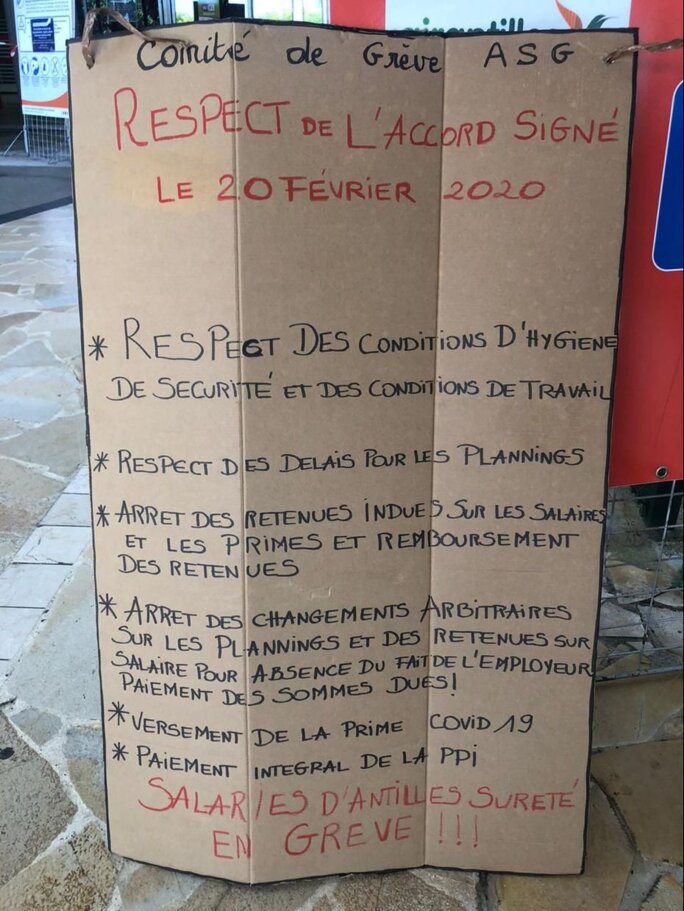 Comité de Grève ASG
RESPECT DE L'ACCORD SIGNÉ
LE 20 FÉVRIER 2020
* RESPECT DES CONDITIONS D'HYGIENE
DE SECURITÉ ET DES CONDITIONS DE TRAVAIL
* RESPECT DES DELAIS POUR LES PLANNINGS
* ARRET DES RETENUES INDUES SUR LES SALAIRES
ET LES PRIMES ET REMBOURSEMENT
DES RETENUES
* ARRET DES CHANGEMENTS ARBITRAIRES
SUR LES PLANNINGS ET DES RETENUES SUR
SALAIRE POUR ABSENCE DU FAIT DE L'EMPLOYEUR
PAIEMENT DES SOMMES DUES!
* VERSEMENT DE LA PRIME COVID 19
* PAIEMENT INTEGRAL DE LA PPI
SALARIES D'ANTILLES SURETÉ
EN GREVE !!!